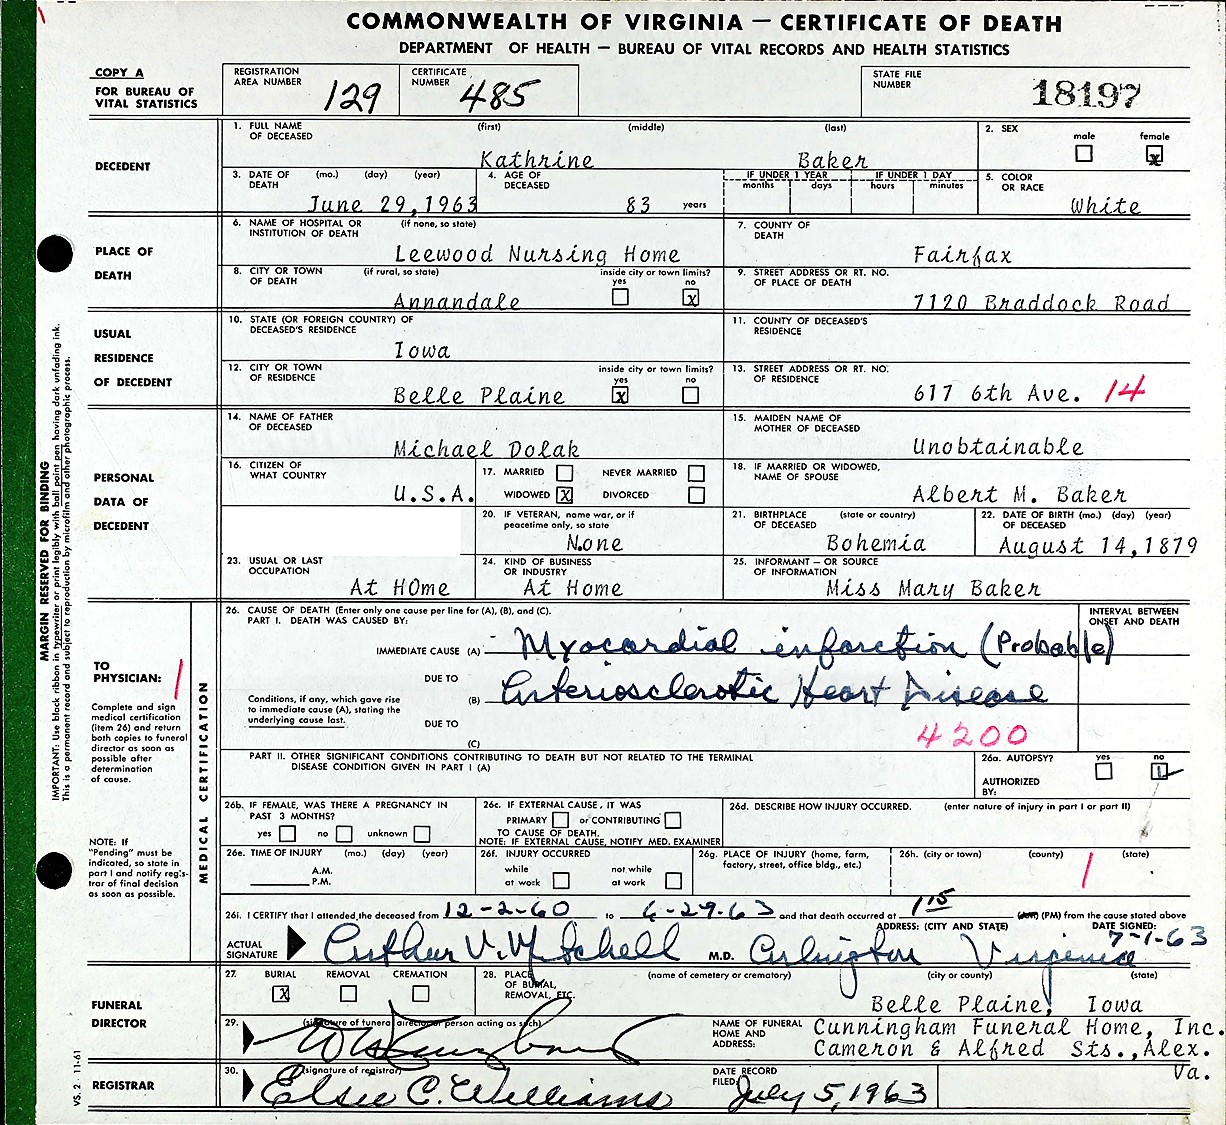 COMMONWEALTH OF VIRGINIA — CERTIFICATE OF DEATH
DEPARTMENT OF HEALTH — BUREAU OF VITAL RECORDS AND HEALTH STATISTICS
COPY A
FOR BUREAU OF
VITAL STATISTICS
REGISTRATION
AREA NUMBER 129
CERTIFICATE
NUMBER 485
STATE FILE
NUMBER 18197
DECEDENT
1. FULL NAME (first) (middle) (last)
OF DECEASED
Kathrine Baker
2. SEX
male female
x
3. DATE OF (mo.) (day) (year)
DEATH
June 29,1963
4. AGE OF
DECEASED
83 years
IF UNDER 1 YEAR IF UNDER 1 DAY
months days hours minutes
5. COLOR
OR RACE
White
PLACE OF
DEATH
6. NAME OF HOSPITAL OR (if none, so state)
INSTITUTION OF DEATH
Leewood Nursing Home
7. COUNTY OF
DEATH
Fairfax
8. CITY OR TOWN (if rural, so state) inside city or town limits?
OF DEATH yes no
Annandale x
9. STREET ADDRESS OR RT. NO.
OF PLACE OF DEATH
7120 Braddock Road
USUAL
RESIDENCE
OF DECEDENT
10. STATE (OR FOREIGN COUNTRY) OF
DECEASED'S RESIDENCE
Iowa
11. COUNTY OF DECEASED'S
RESIDENCE
12. CITY OR TOWN inside city or town limits?
OF RESIDENCE yes no
Belle Plaine x
13. STREET ADDRESS OR RT. NO.
OF RESIDENCE
617 6th Ave. 14
PERSONAL
DATA OF
DECEDENT
14. NAME OF FATHER
OF DECEASED
Michael Dolak
15. MAIDEN NAME OF
MOTHER OF DECEASED
Unobtainable
16. CITIZEN OF
WHAT COUNTRY
U.S.A.
17. MARRIED NEVER MARRIED
WIDOWED X DIVORCED
18. IF MARRIED OR WIDOWED,
NAME OF SPOUSE
Albert M. Baker
20. IF VETERAN, name war, or if
peacetime only, so state
None
21. BIRTHPLACE (state or country)
OF DECEASED
Bohemia
22. DATE OF BIRTH (mo.) (day) (year)
OF DECEASED
August 14,1879
23. USUAL OR LAST
OCCUPATION
At HOme
24. KIND OF BUSINESS
OR INDUSTRY
At Home
25. INFORMANT — OR SOURCE
OF INFORMATION
Miss Mary Baker
MARGIN RESERVED FOR BINDING
IMPORTANT: Use black ribbon in typewriter or print legibly with ball point pen having dark unfading ink.
This is a permanent record and subject to reproduction by microfilm and other photographic process.
TO
PHYSICIAN: 1
Complete and sign
medical certification
(item 26) and return
both copies to funeral
director as soon as
possible after
determination
of cause.
NOTE: If
"Pending" must be
indicated, so state in
part I and notify regis-
trar of final decision
as soon as possible.
MEDICAL CERTIFICATION
26. CAUSE OF DEATH (Enter only one cause per line for (A), (B), and (C).
PART I. DEATH WAS CAUSED BY:
INTERVAL BETWEEN
ONSET AND DEATH
IMMEDIATE CAUSE (A) Myocardial infarction (Probable)
DUE TO
(B) Arteriosclerotic Heart Disease
Conditions, if any, which gave rise
to immediate cause (A), stating the
underlying cause last.
DUE TO
(C) 4200
PART II. OTHER SIGNIFICANT CONDITIONS CONTRIBUTING TO DEATH BUT NOT RELATED TO THE TERMINAL
DISEASE CONDITION GIVEN IN PART I (A)
26a. AUTOPSY? yes no
AUTHORIZED
BY:
26b. IF FEMALE, WAS THERE A PREGNANCY IN
PAST 3 MONTHS?
yes no unknown
26c. IF EXTERNAL CAUSE, IT WAS
PRIMARY or CONTRIBUTING
TO CAUSE OF DEATH.
NOTE: IF EXTERNAL CAUSE, NOTIFY MED. EXAMINER
26d. DESCRIBE HOW INJURY OCCURRED. (enter nature of injury in part I or part II)
26e. TIME OF INJURY (mo.) (day) (year)
A.M.
P.M.
26f. INJURY OCCURRED
while not while
at work at work
26g. PLACE OF INJURY (home, farm,
factory, street, office bldg., etc.)
26h. (city or town) (county) (state)
1
26i. I CERTIFY that I attended the deceased from 12-2-60 to 6-29-63 and that death occurred at 1 15 (AM) (PM) from the cause stated above
ADDRESS: (CITY AND STATE) DATE SIGNED:
7-1-63
ACTUAL
SIGNATURE Arthur V. Mitchell M.D. Arlington Virginia
FUNERAL
DIRECTOR
27. BURIAL REMOVAL CREMATION
X
28. PLACE (name of cemetery or crematory) (city or county) (state)
OF BURIAL,
REMOVAL, ETC.
Belle Plaine, Iowa
29. (signature of funeral director or person acting as such)
NAME OF FUNERAL
HOME AND
ADDRESS:
Cunningham Funeral Home, Inc.
Cameron & Alfred Sts., Alex.
Va.
REGISTRAR
30. (signature of registrar)
Elsie C. Williams
DATE RECORD
FILED: July 5, 1963
VS. 2 - 11-61